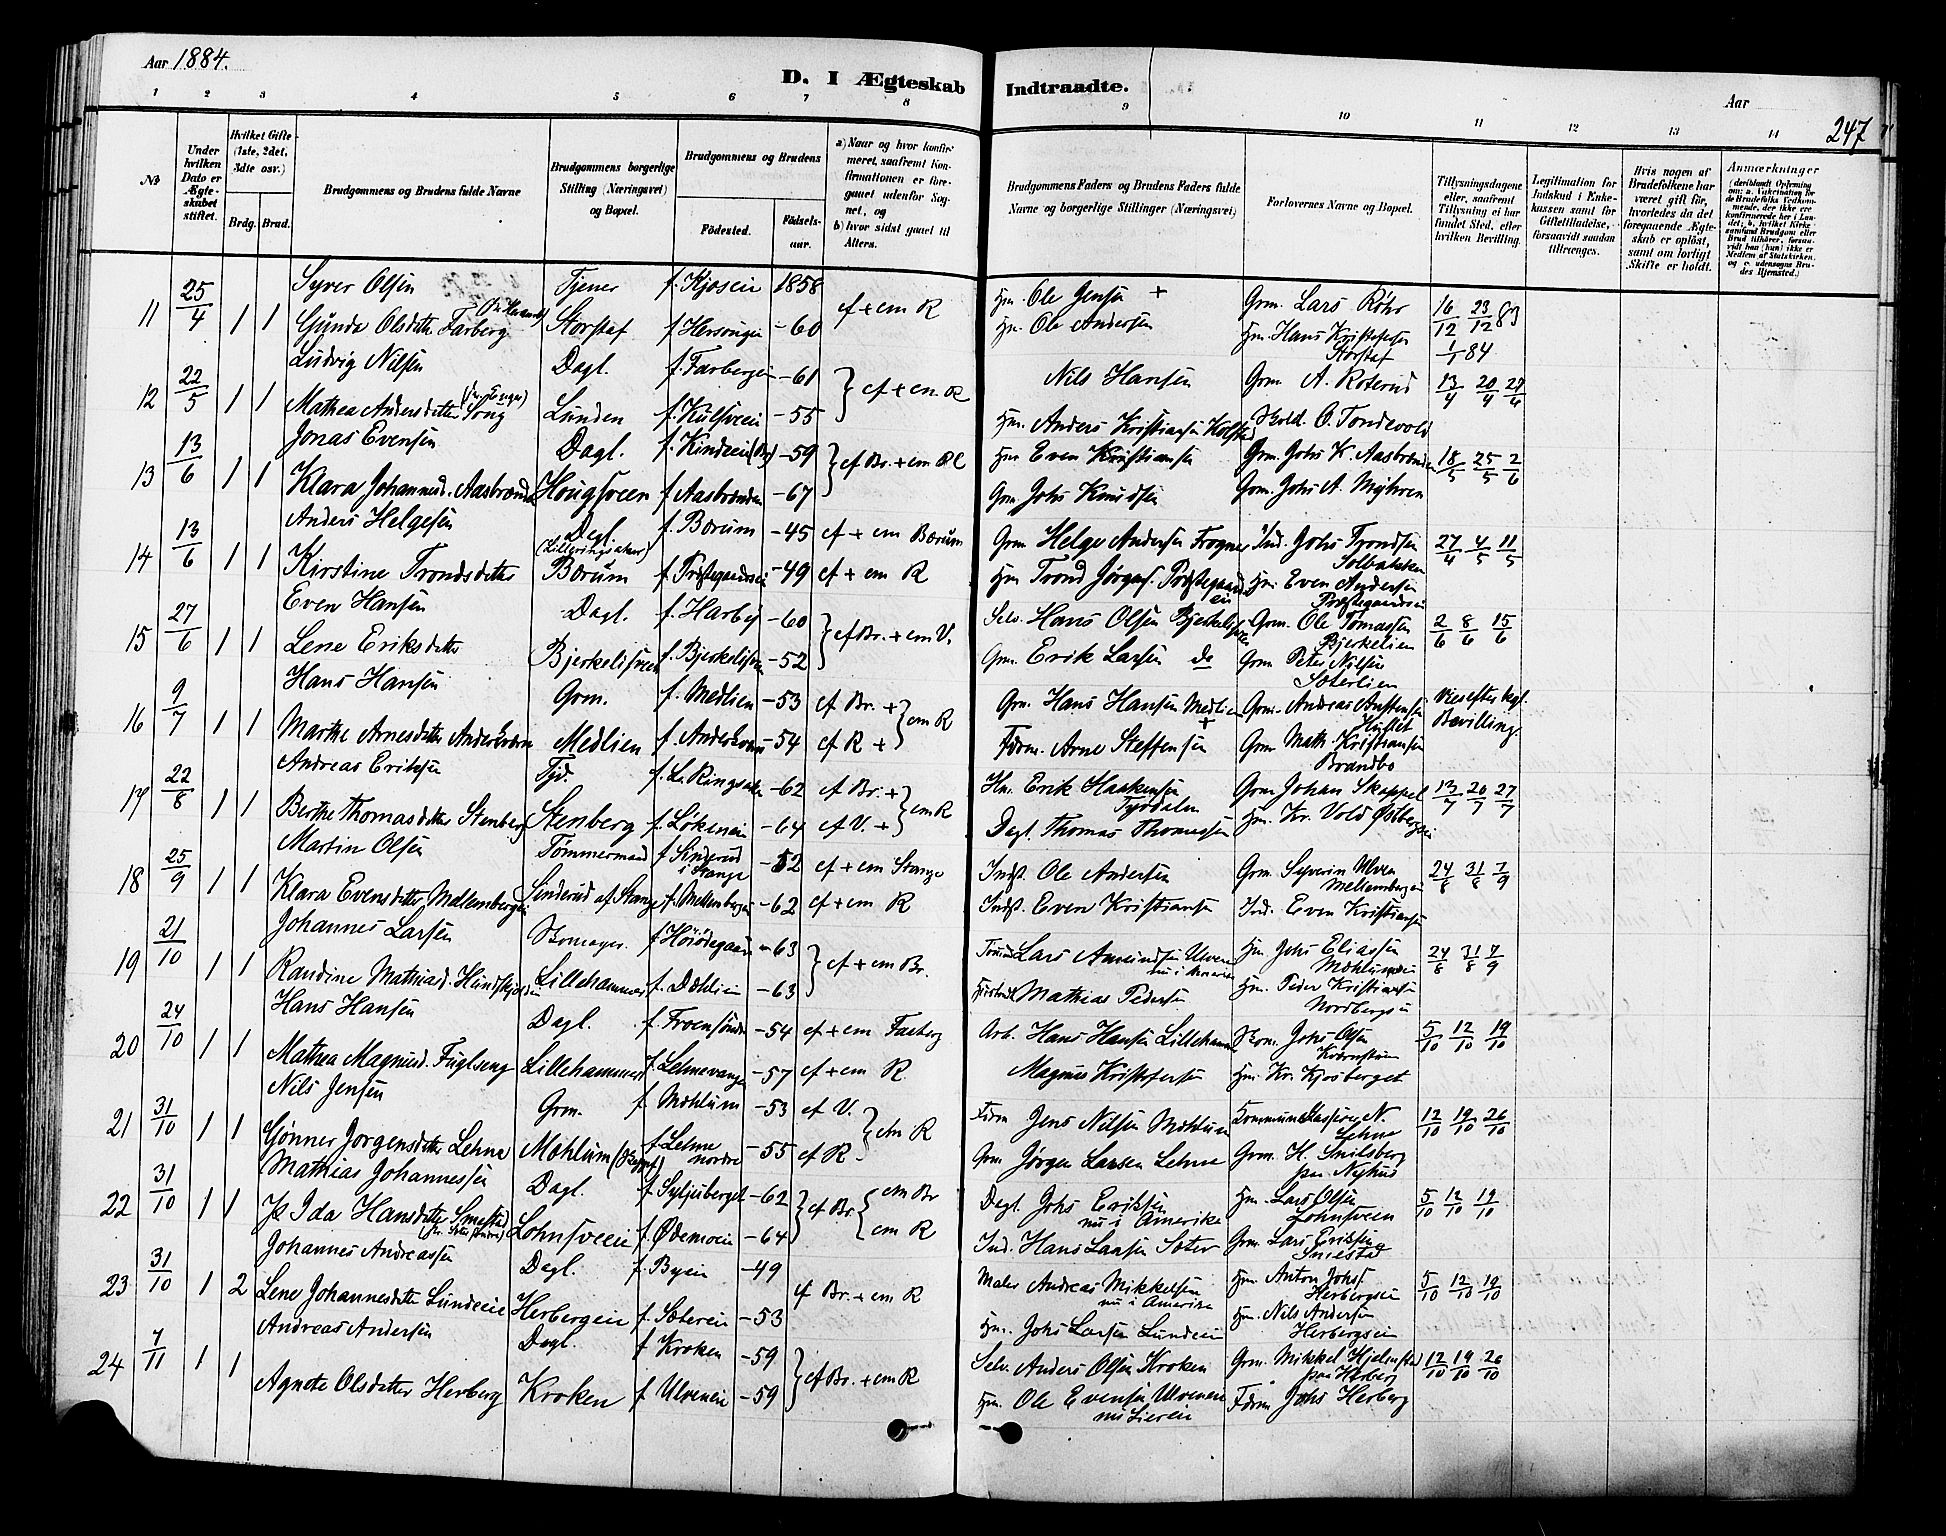 Aar 1884.
D. I Ægteskab Indtraadte.
Aar
247
1 2 3 4 5 6 7 8 9 10 11 12 13 14
No
Under hvilken Dato er Ægteskabet stiftet.
Hvilket Gifte (1ste, 2det, 3die osv.)
Brdg. Brud.
Brudgommens og Brudens fulde Navne
Brudgommens borgerlige Stilling (Næringsvei) og Bopæl.
Brudgommens og Brudens
Fødested. Fødselsaar.
a) Naar og hvor konfirmeret, saafremt Konfirmationen er foregaaet udenfor Sognet, og
b) hvor sidst gaaet til Alters.
Brudgommens Faders og Brudens Faders fulde Navne og borgerlige Stillinger (Næringsvei)
Forlovernes Navne og Bopæl.
Tillysningsdagene eller, saafremt Tillysning ei har fundet Sted, efter hvilken Bevilling.
Legitimation for Indskud i Enkekassen samt for Giftetilladelse, forsaavidt saadan tiltrænges.
Hvis nogen af Brudefolkene har været gift før, hvorledes da det foregaaende Ægteskab er opløst, samt om lovligt Skifte er holdt.
Anmærkninger
11 25/4 1 1 Syver Olsen Tjener f. Kjosein 1858 cf + cm R Hm. Ole Jensen + Grm. Lars Røhr 16/12 23/12 83
Gunda Olsdatter Farberg Storstaf f. Hersougen -60 Hm. Ole Andersen Hm. Hans Kristofersen Storstaf 1/1 84
12 22/5 1 1 Ludvig Nilsen Dagl. f. Farbergen -61 cf + cm R Nils Hansen Grm. A. Roterud 13/4 20/4 27/4
Mathea Andersdatter Song Lunden f. Kulsveen -55 Hm. Anders Kristiansen Kolstad O. Tondevold
13 13/6 1 1 Jonas Evensen Dagl. f. Kindlien (Br) -59 cf Br. + cm R Hm Even Kristiansen Grm. Johs K. Aasbrænden 18/5 25/5 2/6
Klara Johannesd. Aasbrænden Hougsveen f. Aasbrænden -67 Grm. Johs Knudsen Grm. Johs A. Myhren
14 13/6 1 1 Anders Helgesen Dagl. f. Bærum -45 cf + cm Bærum Grm Helge Andersen Frogner Ind. Johs Trondsen Solbakken 27/4 4/5 11/5
Kirstine Trondsdatter Bærum f. Præstegaardsei -49 cf + cm R Hm Trond Jørgs. Præstegaardsei Hm. Even Andersen Præstegaardsei
15 27/6 1 1 Even Hansen Dagl. f. Harby -60 cf Br. + cm V. Selv. Hans Olsen Bjerkelisveen Grm. Ole Tomassen Bjerkelien 2/6 8/6 15/6
Lene Eriksdatter Bjerkelisveen f. Bjerkelisveen -52 Grm. Erik Larsen do Grm Peter Nilsen Sæterlien
16 9/7 1 1 Hans Hansen Grm. f. Medlien -53 cf Br. + cm R Grm. Hans Hansen Medlien Grm. Andreas Austensen Viet efter kgl. Bevilling.
Marthe Arnesdatter Anderkværn Medlien f. Anderkværn -54 cf R + Fdrm. Arne Steffensen + Grm Math. Kristiansen Brandbo
17 22/8 1 1 Andreas Eriksen Tjd. f. L. Ringsaker -62 cf Br. + cm R Hm. Erik Haakensen Tyrdalen Grm Johan Skappel 13/7 20/7 27/7
Berthe Thomasdatter Stenberg Stenberg f. Løkenein -64 cf V. + Dagl. Thomas Thomassen Hm. Kr. Vold Østbergsei
18 25/9 1 1 Martin Olsen Tømmermand f Sinderud i Stange -52 cf + cm Stange Indst. Ole Andersen Grm. Syverin Ulven Mellembergen 24/8 31/8 7/9
Klara Evensdatter Mellembergen Sinderud af Stange f. Mellembergen -62 cf + cm R Indst. Even Kristiansen Ind. Even Kristiansen
19 21/10 1 1 Johannes Larsen Skomager. f Høiødegaarden -63 cf + cm Br. Lars Amundsen Ulven nu i Amerika Hm Johs Eliassen Mæhlumsei 24/8 31/8 7/9
Randine Mathiasd. Lillehammer f. Dæhlien -63 Mathias Pedersen Hm. Peder Kristiansen Nordbergsei
20 24/10 1 1 Hans Hansen Dagl. f. Froensøndre -54 cf + cm Faaberg Arb. Hans Hansen Lillehammer Johs Olsen 5/10 12/10 19/10
Mathea Magnusd. Fuglseng Lillehammer f. Lehnevangen -57 cf + cm R. Magnus Kristofersen Hm. Kr. Kjosberget
21 31/10 1 1 Nils Jensen Grm. f. Mæhlum -53 cf V. cm R Fdrm Jens Nilsen Mæhlum Kommunekasserer N. Lehne 12/10 19/10 26/10
Gønner Jørgensdatter Lehne Mæhlum f. Lehne nordre -55 cf R Grm. Jørgen Larsen Lehne Grm. H. Smidsberg paa Nyhus
22 31/10 1 1 Mathias Johannessen Dagl. f. Syljuberget -62 cf Br. cm Br Dagl. Johs Eriksen nu i Amerika Hm. Lars Olsen Lohnsveen 5/10 12/10 19/10
Ida Hansdatter Smestad Lohnsveen f. Ødemoen -64 cm R Ind. Hans Larsen Sæter Grm. Lars Eriksen Smestad
23 31/10 1 2 Johannes Andreassen Dagl. f. Byein -49 cf Br. + cm R Maler Andreas Mikkelsen nu i Amerika Hm. Anton Johs. Herbergsein 5/10 12/10 19/10
Lene Johannesdatter Lundeeie Herbergeie f. Sætereie -53 Hm. Johs Larsen Lundeie Hm. Nils Andersen Herbergsein
24 7/11 1 1 Andreas Andersen Dagl. f Kroken -59 cf Br. + cm R Selv. Anders Olsen Kroken Grm. Mikkel Hjelmstad paa Herberg 12/10 19/10 26/10
Agnete Olsdatter Herberg Kroken f Ulveneie -59 Hm. Ole Evensen Ulveneie nu Liereie Fdrm Johs Herberg